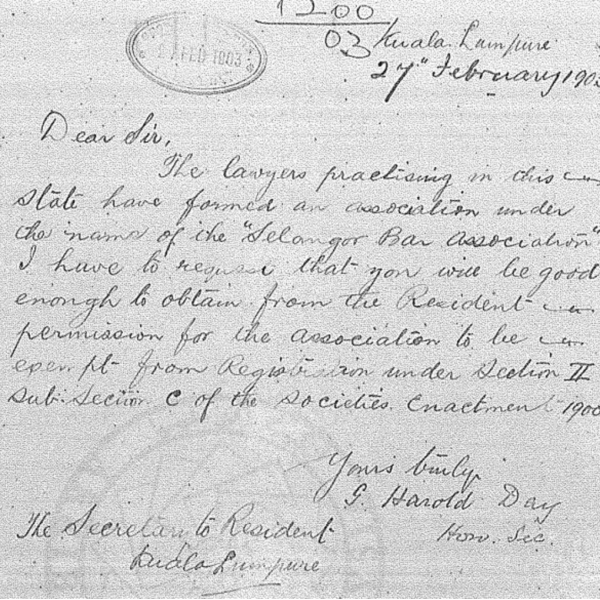 1200
03
FEB 1903
Kuala Lumpure
27" February 1903
Dear Sir,
The lawyers practising in this
State have formed an association under
the name of the "Selangor Bar Association"
I have to request that you will be good
enough to obtain from the Resident
permission for the association to be
exempt from Registration under Section II
Sub. Section C of the Societies Enactment 1900
Yours truly
G. Harold Day
Hon. Sec.
The Secretary to Resident
Kuala Lumpure